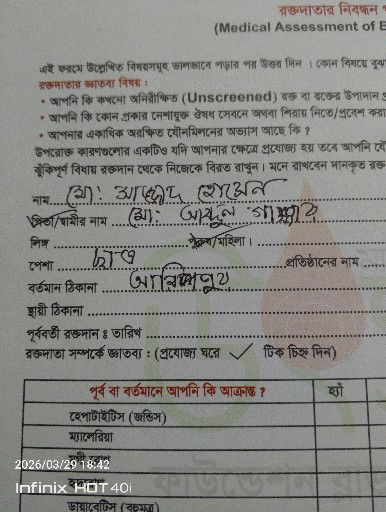 রক্তদাতার নিবন্ধন
(Medical Assessment of B
এই ফরমে উল্লেখিত বিষয়সমূহ ভালভাবে পড়ার পর উত্তর দিন । কোন বিষয়ে বুঝ
রক্তদাতার জ্ঞাতব্য বিষয় :
• আপনি কি কখনো অনিরীক্ষিত (Unscreened) রক্ত বা রক্তের উপাদান
• আপনি কি কোন প্রকার নেশাযুক্ত ঔষধ সেবনে অথবা শিরায় নিতে/প্রবেশ করা
• আপনার একাধিক অরক্ষিত যৌনমিলনের অভ্যাস আছে কি ?
উপরোক্ত কারণগুলোর একটিও যদি আপনার ক্ষেত্রে প্রযোজ্য হয় তবে আপনি যে
ঝুঁকিপূর্ণ বিষয় রক্তদান থেকে নিজেকে বিরত রাখুন । মনে রাখবেন দানকৃত রক্ত
নাম মো: হোসেন
পিতা/স্বামীর নাম মো: আব্দুল
লিঙ্গ পুরুষ/মহিলা ।
পেশা ছাত্র প্রতিষ্ঠানের নাম
বর্তমান ঠিকানা
স্থায়ী ঠিকানা
পূর্ববর্তী রক্তদান ঃ তারিখ
রক্তদাতা সম্পর্কে জ্ঞাতব্য : (প্রযোজ্য ঘরে ✓ টিক চিহ্ন দিন)
পূর্ব বা বর্তমানে আপনি কি আক্রান্ত ? হ্যাঁ
হেপাটাইটিস (জন্ডিস)
ম্যালেরিয়া
2026/03/29 18:42
Infinix HOT 40i
ডায়াবেটিস (বহুমূত্র)
ফাউন্ডেশন ব্লাড